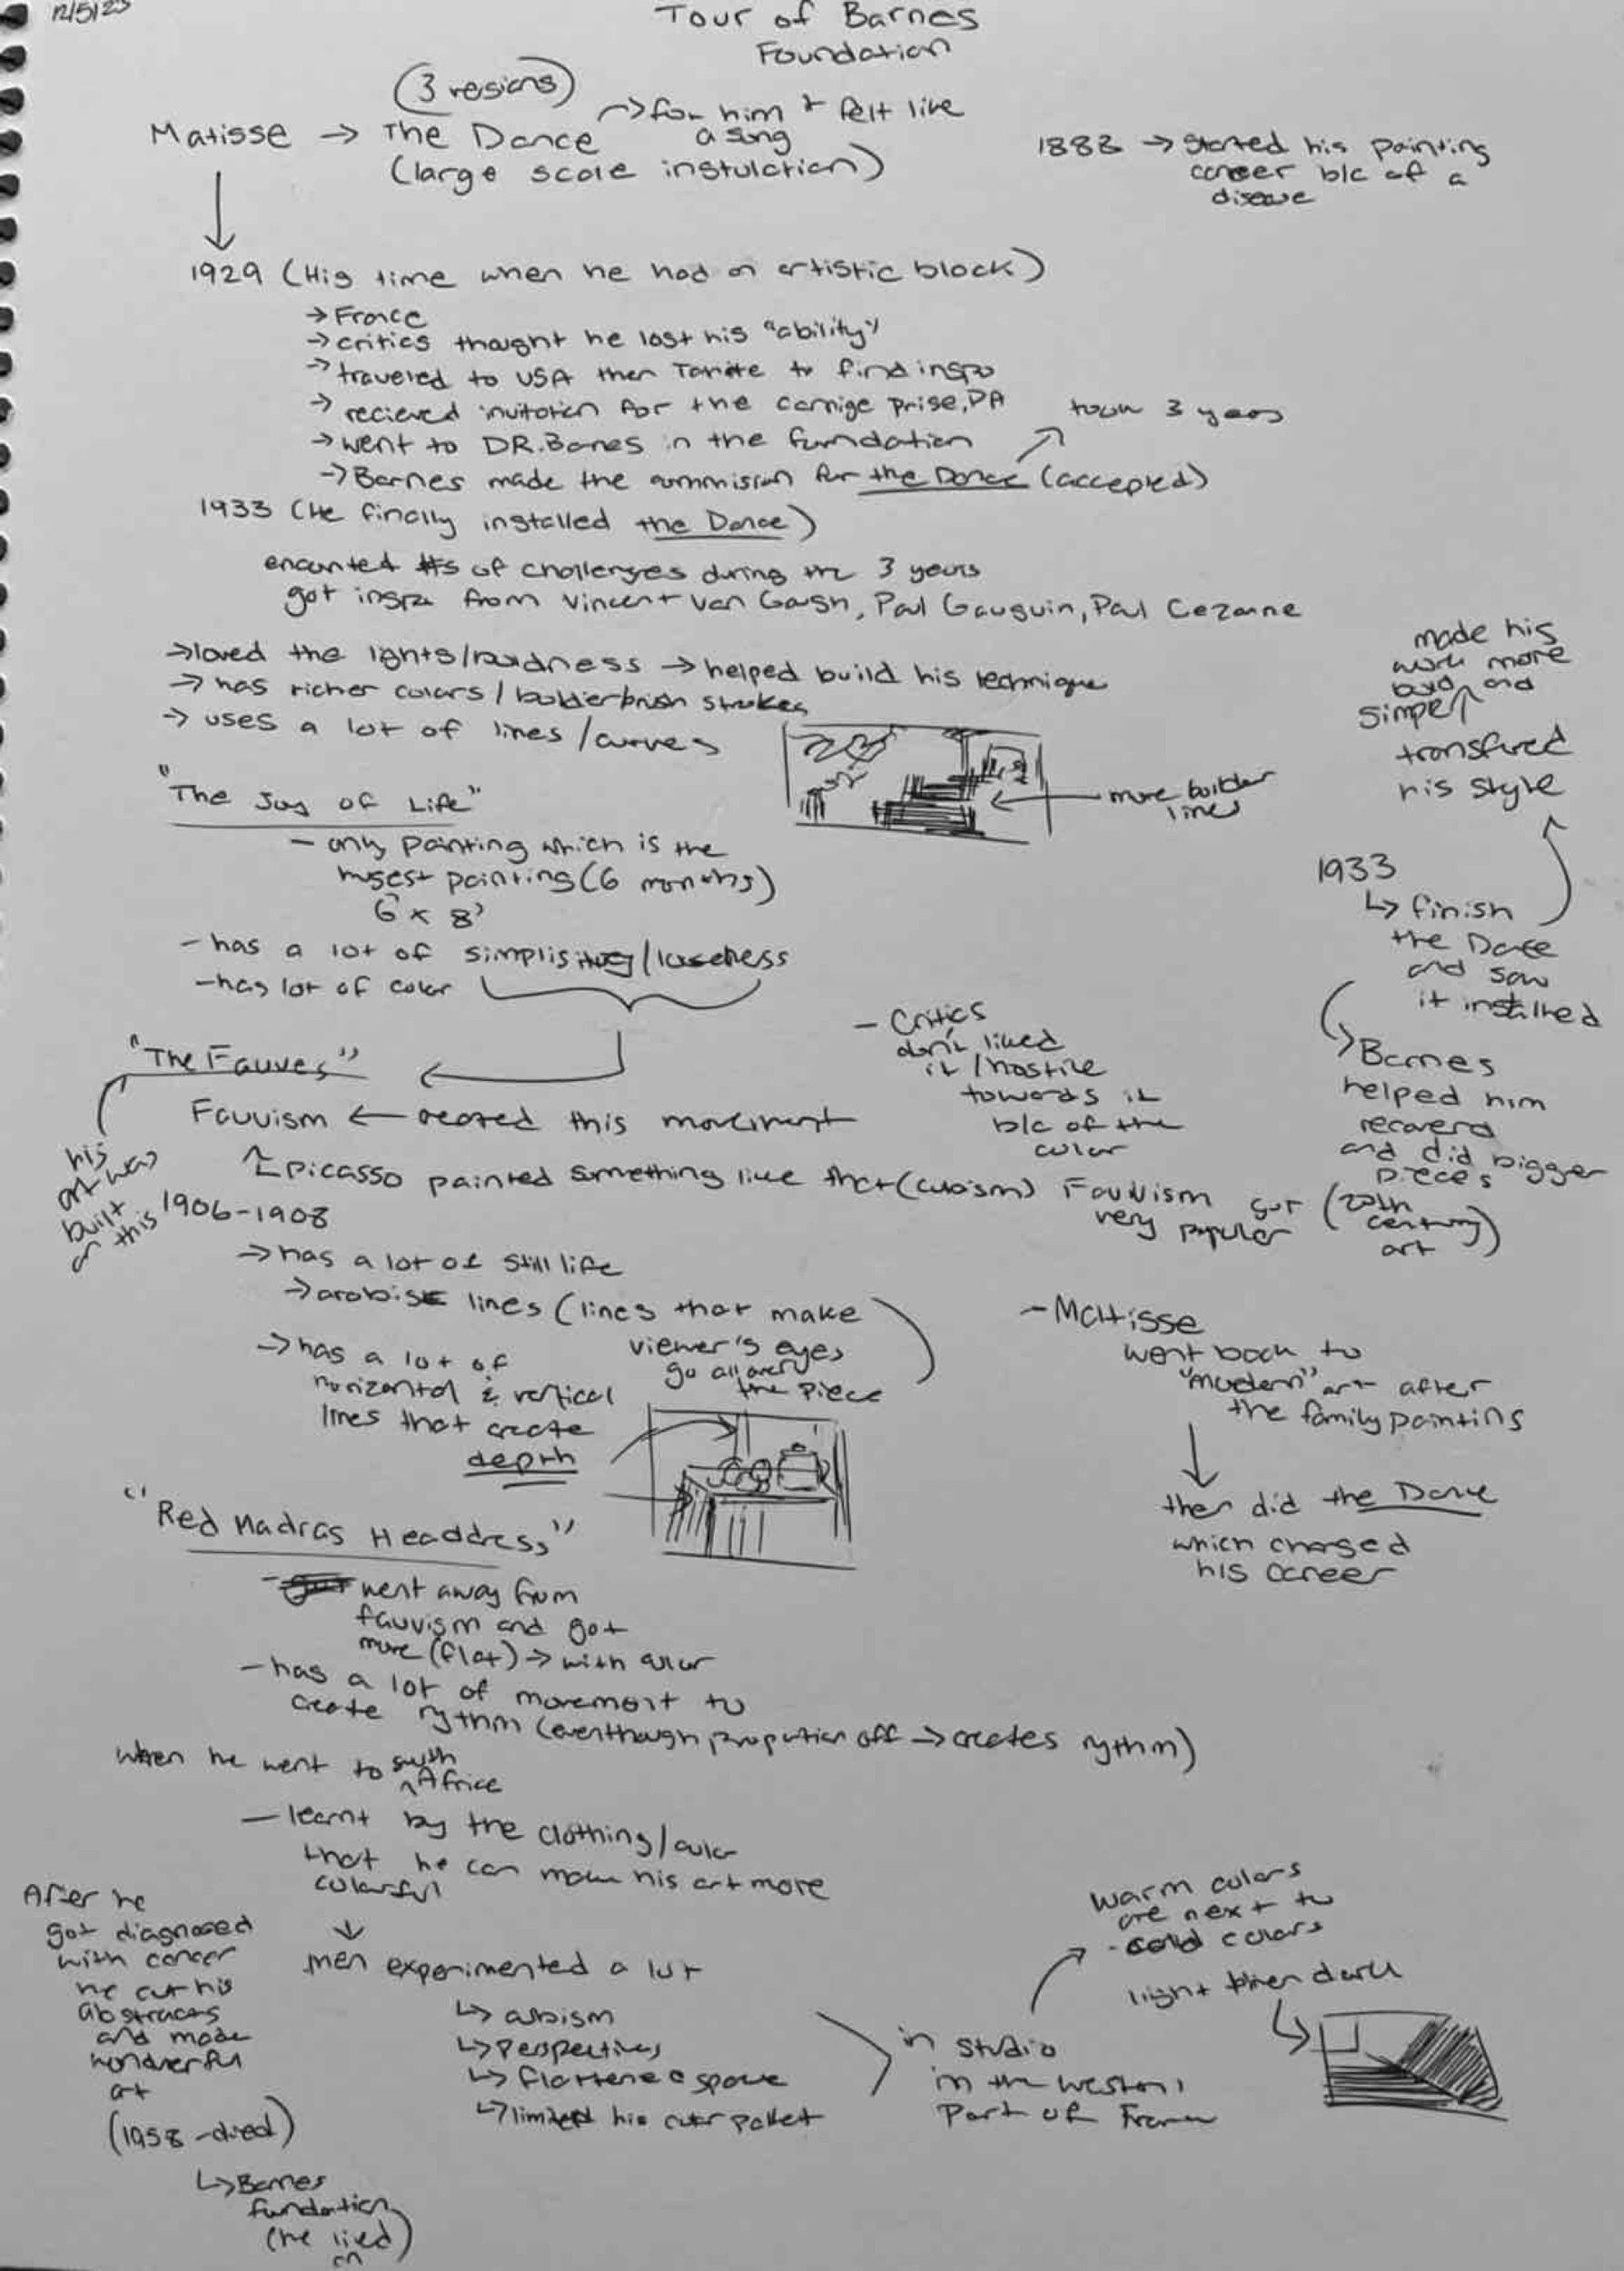 12/5/23
Tour of Barnes
Foundation
(3 vesions)
Matisse → The Dance
(large scale instulction)
→ for him + felt like
a song
1888 → Started his painting
career b/c of a
disease
1929 (His time when he had an artistic block)
→ France
→ critics thought he lost his "ability"
→ traveled to USA then to find inspo
→ recieved invitation for the carnige prise, PA
→ went to DR. Barnes in the foundation
took 3 years
→ Barnes made the commision for the Dance (accepted)
1933 (He finally installed the Dance)
encounted #s of challenges during the 3 years
got inspo from Vincent Van Gogh, Paul Gauguin, Paul Cezanne
→ loved the lights/ → helped build his technique
→ has richer colors / bolder brush strokes
→ uses a lot of lines / curves
more bolder
lines
made his
work more
bold and
simpler
transfired
his style
"The Joy of Life"
- only painting which is the
hugest painting (6 months)
6 x 8'
- has a lot of /looseness
- has lot of color
1933
↳ finish
the Dance
and saw
it installed
Barnes
helped him
and did bigger
pieces
- Critics
don't liked
it / hostile
towards it
b/c of the
color
"The Fauves"
Fauvism ← created this movement
his
art was
built
on this
↑ picasso painted something like that (cubism)
Fauvism got
very popular
(20th
century
art)
1906-1908
→ has a lot of still life
→ lines (lines that make
viewer's eyes
go all over
the piece
→ has a lot of
horizontal & vertical
lines that create
depth
- Mattisse
went back to
"modern" art after
the family painting
↓
then did the Dance
which changed
his career
"Red Madras Headdress"
- went away from
fauvism and got
more (flat) → with color
- has a lot of movement to
create rythm (eventhough propotion off → creates rythm)
When he went to south
^ Africa
- learnt by the clothing/color
that he can make his art more
colorful
↓
then experimented a lot
↳ cubism
↳ perspectives
↳ flattened space
↳ limited his color pallet
in studio
in the western
part of France
warm colors
are next to
- cold colors
light then dark
After he
got diagnosed
with cancer
he cut his
abstracts
and made
art
(1958 - died)
↳ Barnes
fundation
(he lived
on)